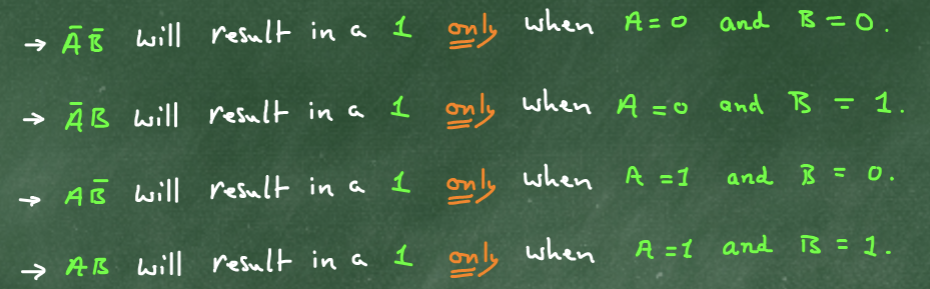 → A̅ B̅ will result in a 1 only when A = 0 and B = 0.
→ A̅ B will result in a 1 only when A = 0 and B = 1.
→ A B̅ will result in a 1 only when A = 1 and B = 0.
→ A B will result in a 1 only when A = 1 and B = 1.